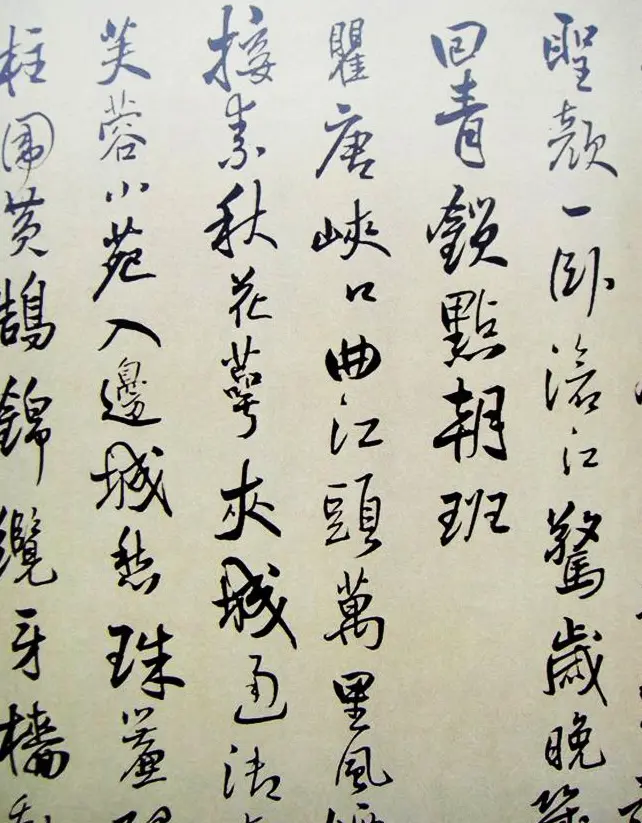 聖顏一臥滄江驚歲晚幾
回青鎖點朝班
瞿唐峽口曲江頭萬里風煙
接素秋花萼夾城通御
芙蓉小苑入邊城愁珠簾
柱圍黃鵠錦纜牙檣